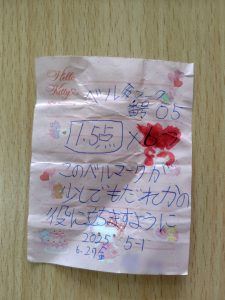 Hello Kitty
ベルマーク
番号 05
1.5点 ×6
このベルマークが
少しでもだれかの
役に立ちますように
2025 5-1
6.29